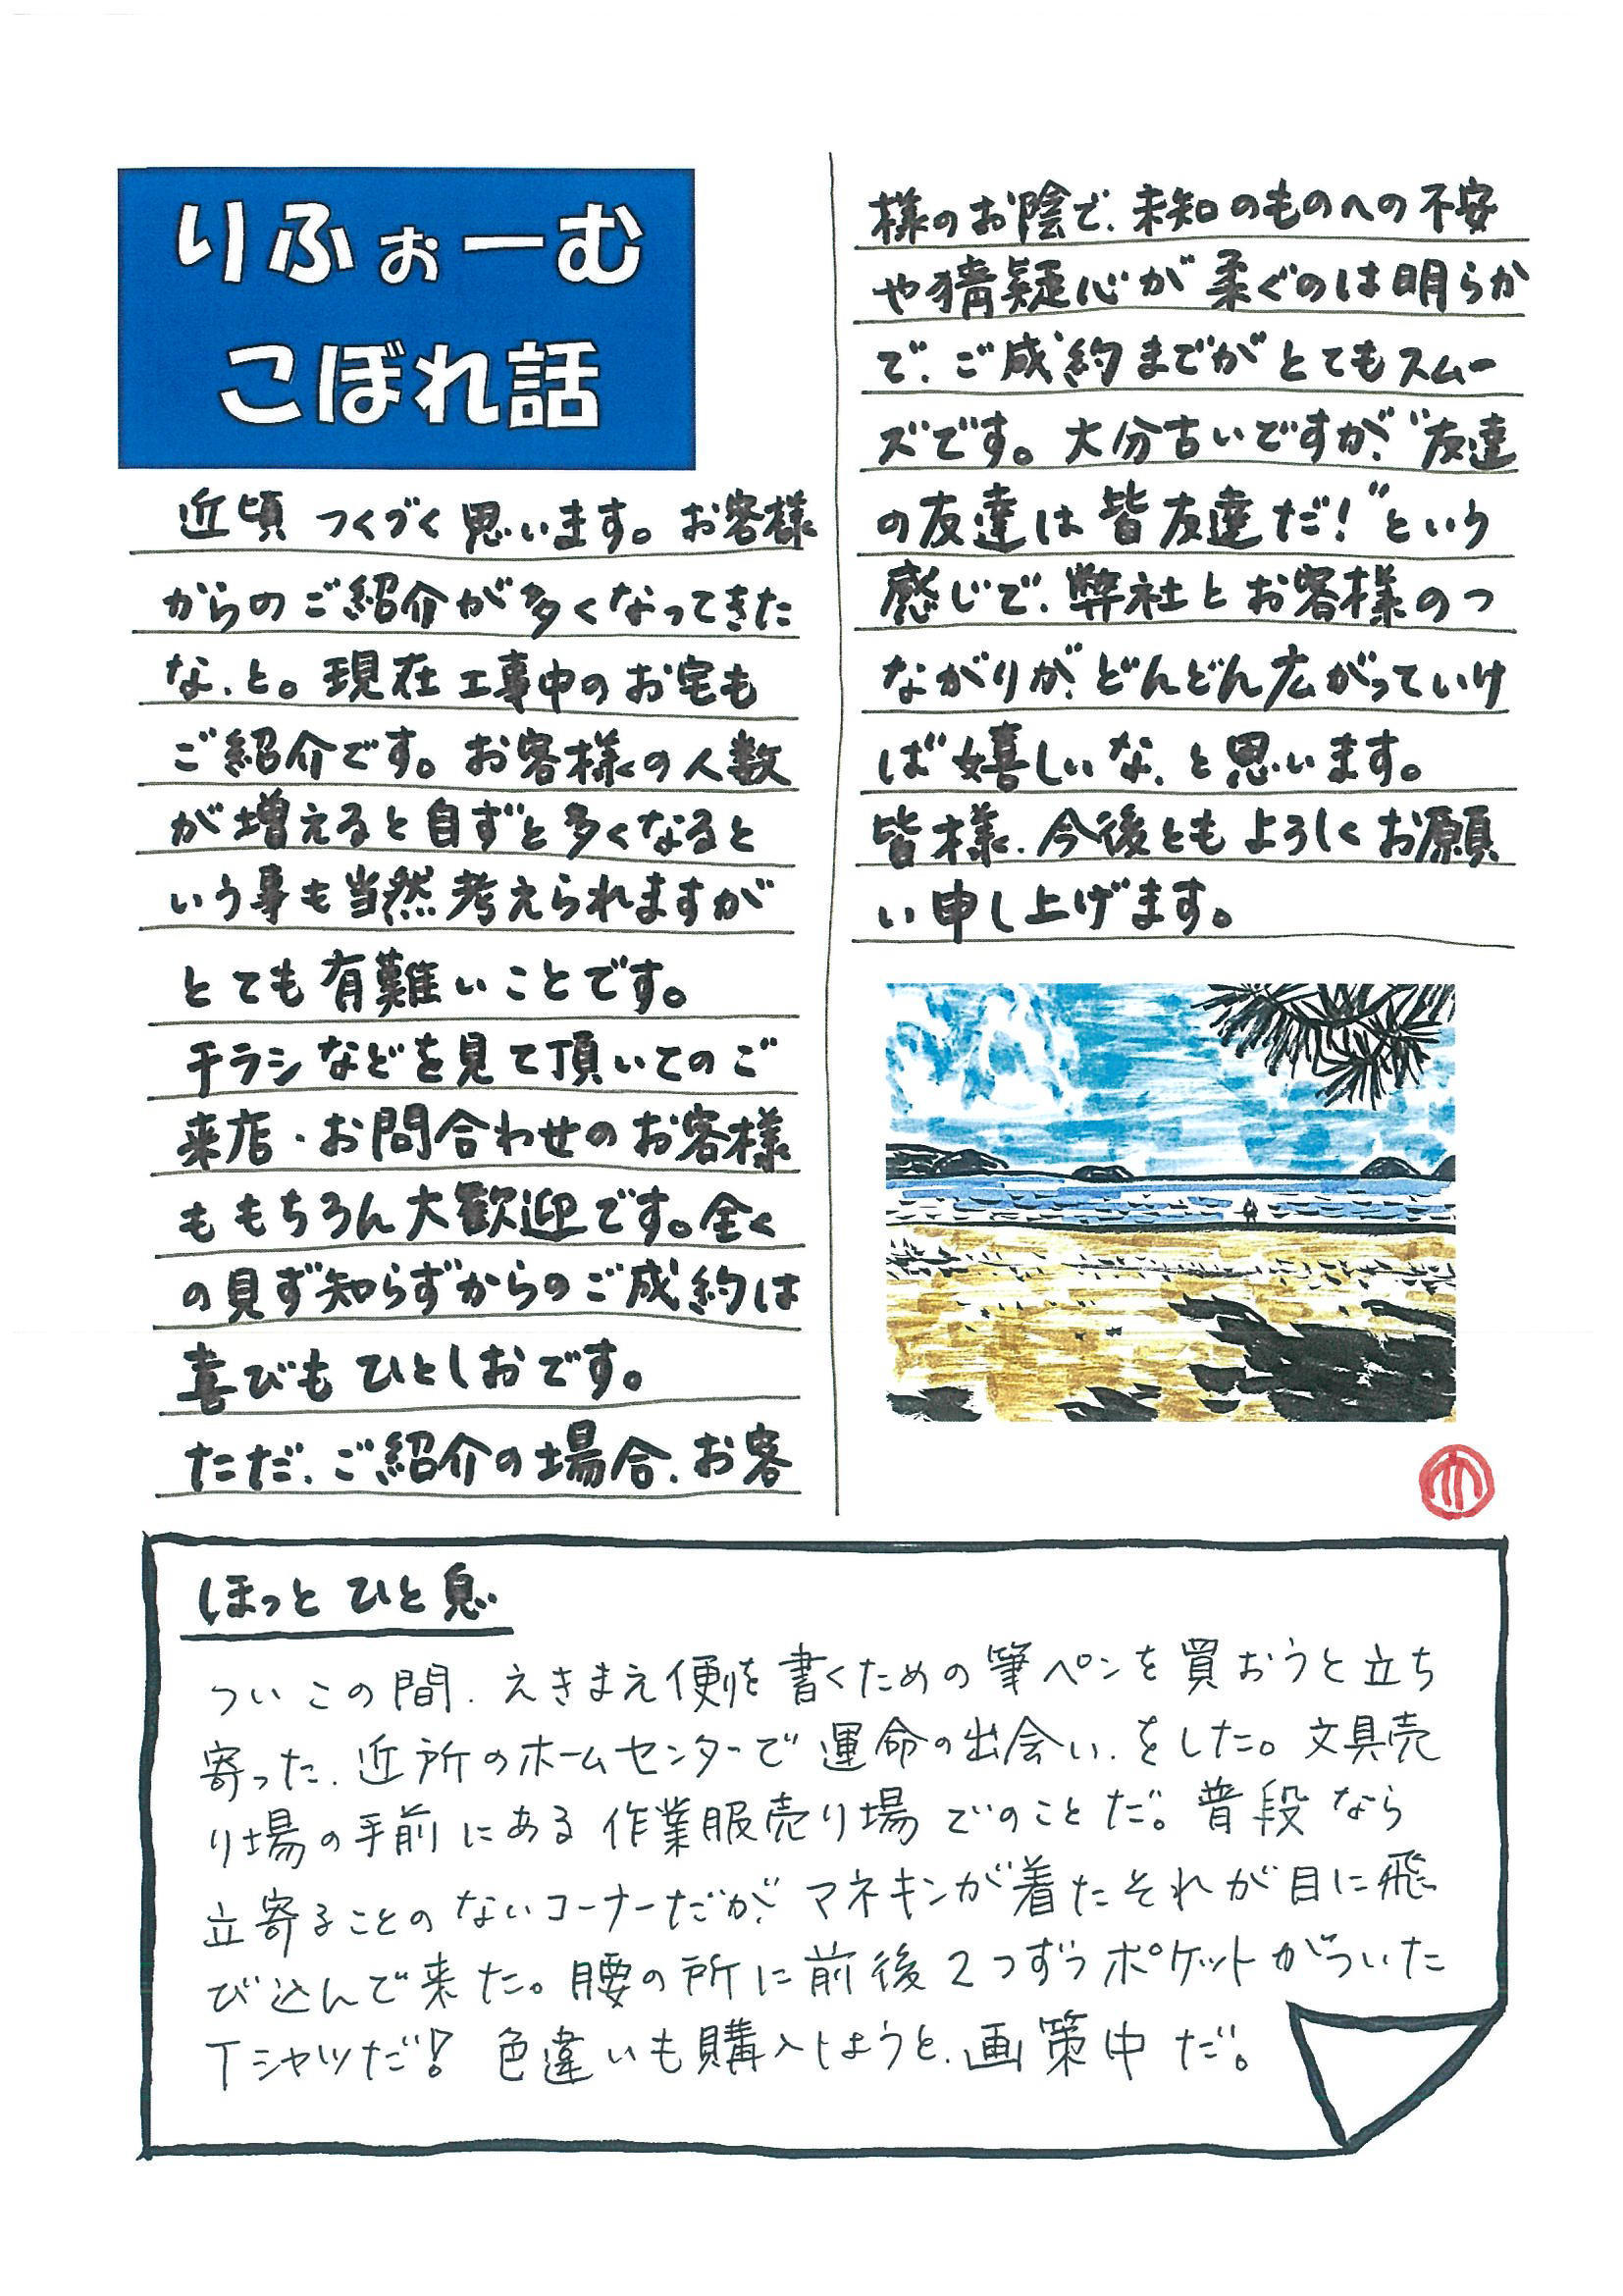 りふぉーむ
こぼれ話
近頃つくづく思います。お客様
からのご紹介が多くなってきた
な、と。現在工事中のお宅も
ご紹介です。お客様の人数
が増えると自ずと多くなると
いう事も当然考えられますが
とても有難いことです。
チラシなどを見て頂いてのご
来店・お問合わせのお客様
ももちろん大歓迎です。全く
の見ず知らずからのご成約は
喜びもひとしおです。
ただ、ご紹介の場合、お客
様のお陰で、未知のものへの不安
や猜疑心が柔ぐのは明らか
で、ご成約までがとてもスムー
ズです。大分古いですが、“友達
の友達は皆友達だ!”という
感じで、弊社とお客様のつ
ながりが、どんどん広がっていけ
ば嬉しいな、と思います。
皆様、今後ともよろしくお願
い申し上げます。
ほっとひと息
ついこの間、えきまえ便を書くための筆ペンを買おうと立ち
寄った、近所のホームセンターで運命の出会い、をした。文具売
り場の手前にある作業服売り場でのことだ。普段なら
立寄ることのないコーナーだが、マネキンが着たそれが目に飛
び込んで来た。腰の所に前後2つずつポケットがついた
Tシャツだ! 色違いも購入しようと、画策中だ。